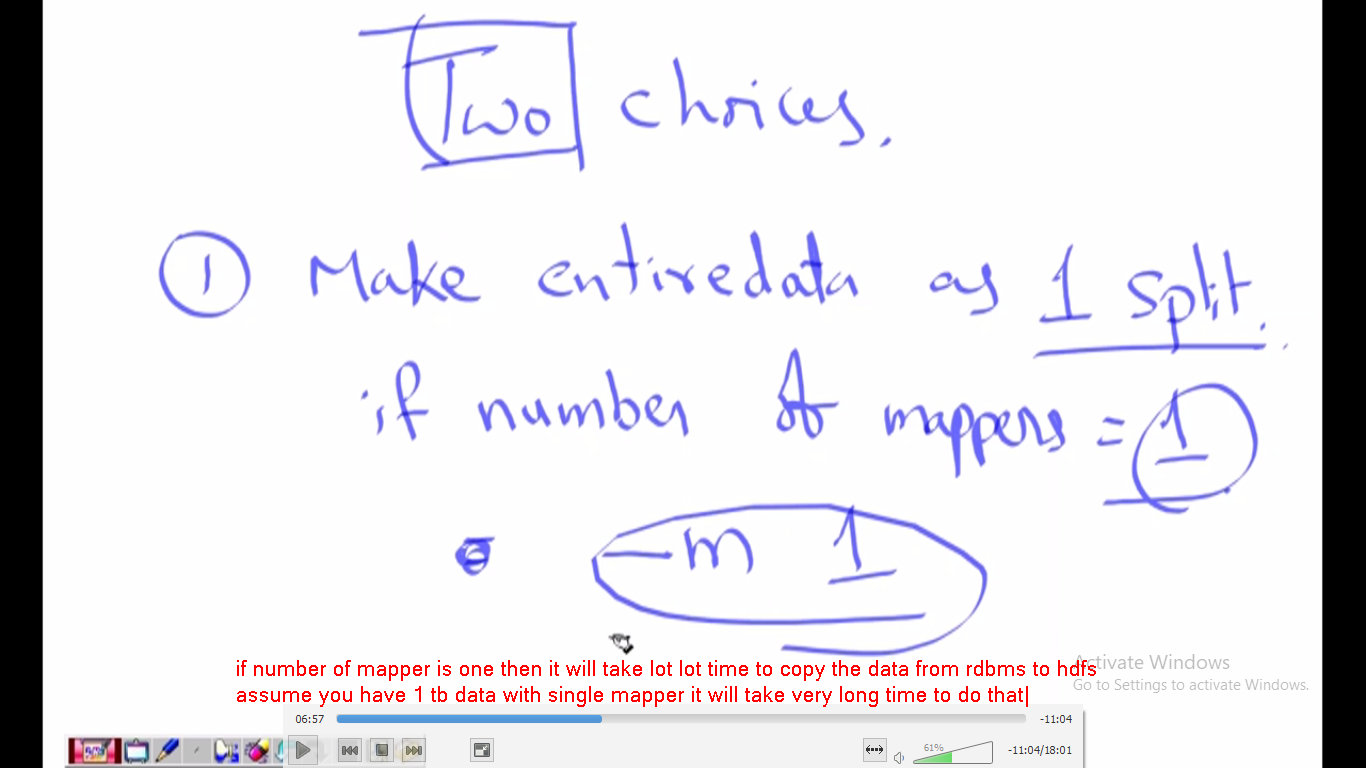 Two choices.
① Make entire data as 1 split.
if number of mappers = 1
-m 1
if number of mapper is one then it will take lot lot time to copy the data from rdbms to hdfs
assume you have 1 tb data with single mapper it will take very long time to do that
Activate Windows
Go to Settings to activate Windows.
06:57 -11:04
61% -11:04/18:01